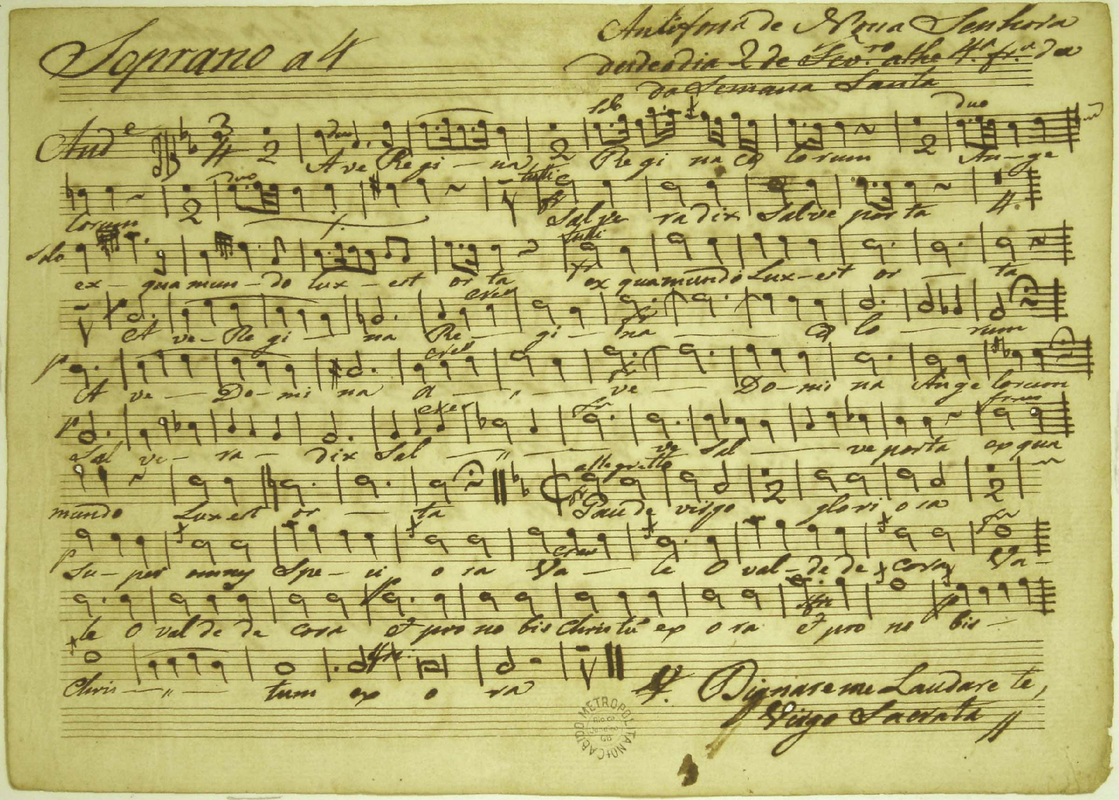 Soprano a 4
Antifona de Nossa Senhora
desde o dia 2 de Fev.ro athe 4.a fr.a da
da Semana Santa
solo
duo
And.e 3/4 2 duo 2 2
A ve Re gi - na Re gi na Cæ lorum An - ge
duo tutti
2 4
lorum Salve radix Salve porta
Solo tutti
ex - qua mun - do lux - est or ta ex qua mundo Lux - est or ta
cres
A ve - Re gi - na Re - gi - na - Cæ lo - rum
p cres
A ve - Do - mi na A - " - ve - Do - mi na Ange lorum
p cres
Sal ve - ra - dix Sal - " - ve Sal - ve porta ex qua
allegretto
mundo Lux est or - ta Gaude virgo 2 glori o sa 2
cres
Su - per omnes Spe - ci o sa Va - le O val - de de cora Va -
le O val de de cora Et pro no bis Christũ ex o ra Et pro no bis -
Chris - " - tum ex o ra
V. Dignare me Laudare te,
Virgo Sacrata
CABIDO METROPOLITANO